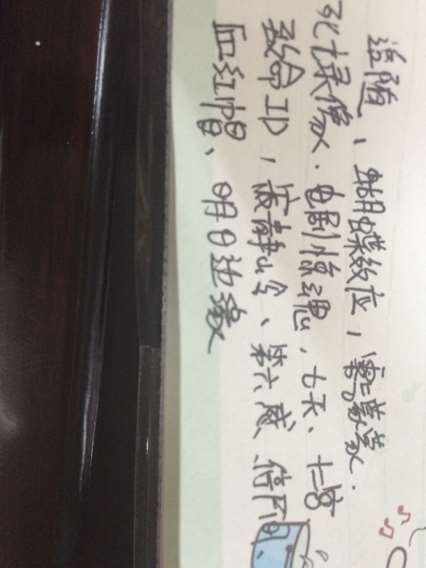 追随、蝴蝶效应,
死亡录像. 电剧惊魂, 七天、十二宫
致命ID, 寂静岭、第六感、
血红帽、明日边缘